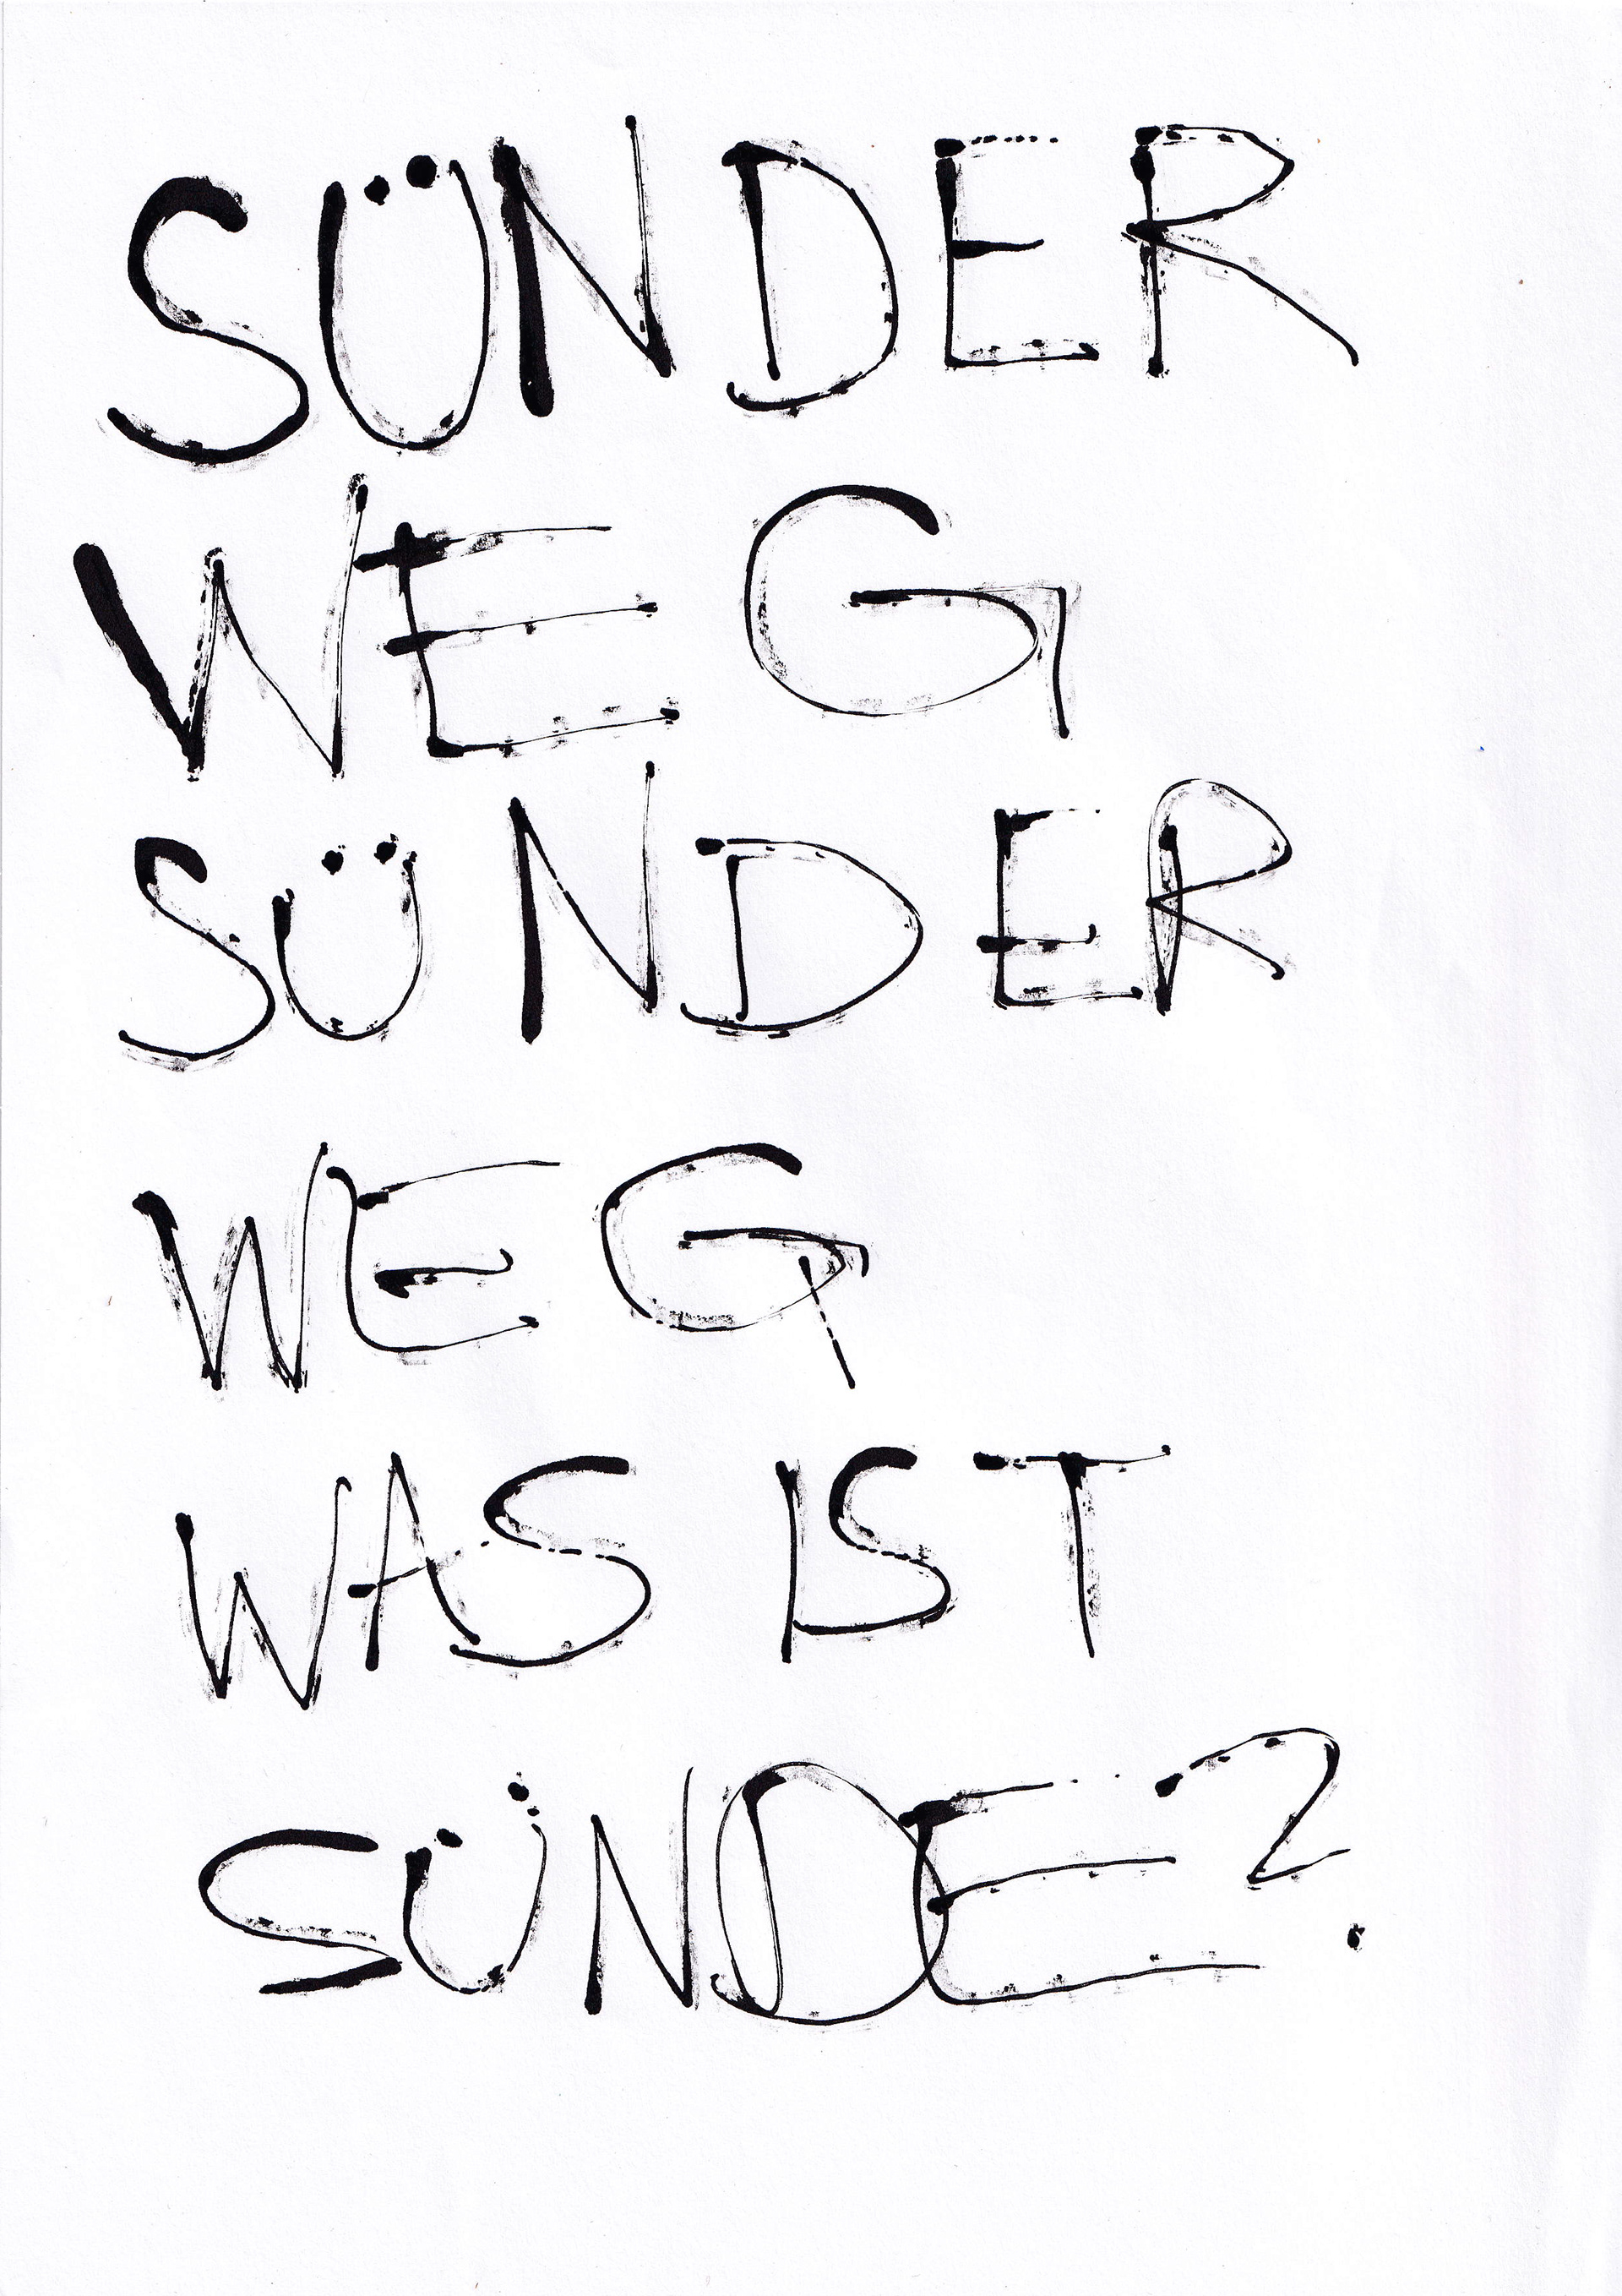 SÜNDER
WEG
SÜNDER
WEG
WAS IST
SÜNDE?